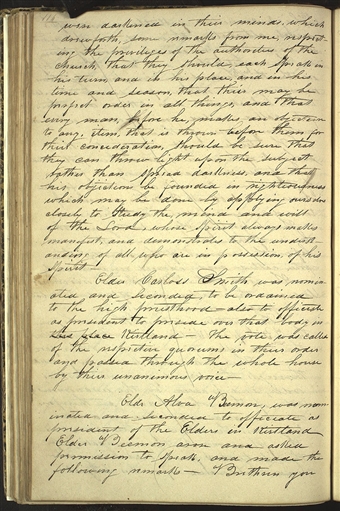 were darkened in their minds, which
drew forth, some remarks from me, respect-
ing the privileges of the authorities of the
church, that they should, each speak in
his turn, and in his place, and in his
time and season, that their may be
perfect order in all things, and that
every man, before he, makes, an objection
to any, item, that is thrown before them for
their consideration, should be sure that
they can throw light upon the subject
rather than spread darkness, and that
his objections be founded in righteousness
which may be done by applying ourselves
closely to study the mind and will
of the Lord, whose Spirit always makes
manifest, and demonstrates to the underst-
anding of all who are in possession, of his
Spirit.—
Elder Carloss Smith was nomin
ated and seconded, to be ordained
to the high priesthood— also to officiate
as president to preside over that body in
Kirtland— The vote was called
of the respective quorums in their order
and passed through the whole house
by their unanimous voice
Elder Alva Beman, was nom-
inated and seconded to officiate as
president of the Elders in Kirtland
Elder Beman arose and asked
permission to speak, and made the
following remarks— Brethren you